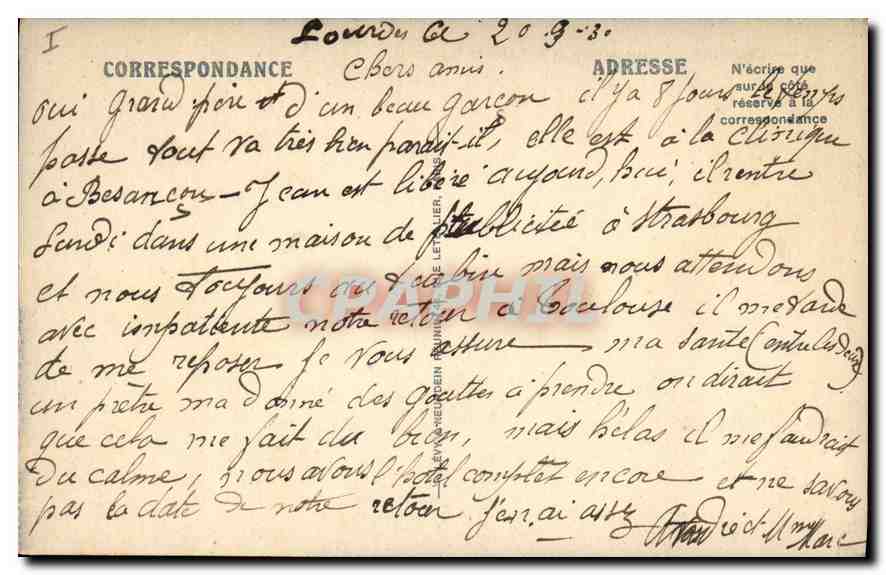 Lourdes le 20.9.30
CORRESPONDANCE
Chers amis.
ADRESSE
N'écrire que
sur le côté
réservé à la
correspondance
oui Grand père et d'un beau garçon il y a 8 jours le temps
passe tout va très bien parait-il, elle est à la Clinique
à Besançon - Jean est libéré aujourd'hui, il rentre
Lundi dans une maison de Publicité à Strasbourg
et nous Toujours au mais nous attendons
avec impatiente notre retour à Toulouse il me tarde
de me reposer je vous assure ma santé (entre les deux)
un prêtre m'a donné des gouttes à prendre on dirait
que cela me fait du bien, mais hélas il me faudrait
du calme, nous avons l'hotel complet encore et ne savons
pas la date de notre retour j'en ai assez
André et Marc
LÉVY & NEURDEIN RÉUNIS, 44, RUE LETELLIER, PARIS
CPAPHIL
I